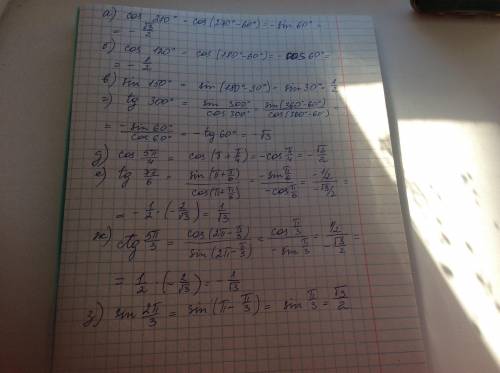 а) cos 210° = cos(270°-60°) = -sin 60° =
= -√3/2
б) cos 120° = cos(180°-60°) = -cos 60° =
= -1/2
в) sin 150° = sin(180°-30°) = sin 30° = 1/2
г) tg 300° = sin 300°/cos 300° = sin(360°-60°)/cos(360°-60°) =
= -sin 60°/cos 60° = -tg 60° = -√3
д) cos 5π/4 = cos(π+π/4) = -cos π/4 = -√2/2
е) tg 7π/6 = sin(π+π/6)/cos(π+π/6) = -sin π/6/-cos π/6 = -1/2/-√3/2 =
= -1/2 · (-2/√3) = 1/√3
ж) ctg 5π/3 = cos(2π-π/3)/sin(2π-π/3) = cos π/3/-sin π/3 = 1/2/-√3/2 =
= 1/2 · (-2/√3) = -1/√3
з) sin 2π/3 = sin(π-π/3) = sin π/3 = √3/2